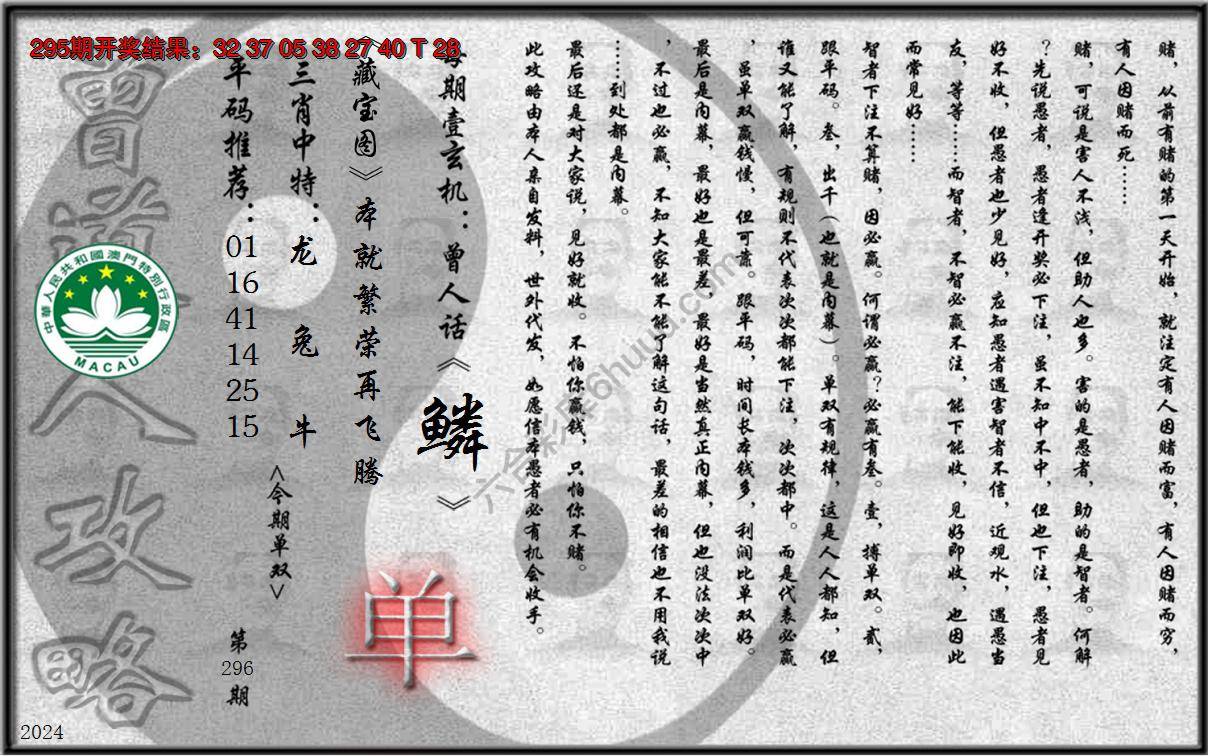 295期开奖结果：32 37 05 38 27 40 T 28
赌，从前有赌的第一天开始，就注定有人因赌而富，有人因赌而穷，
有人因赌而死……
赌，可说是害人不浅，但助人也多。害的是愚者，助的是智者。何解
？先说愚者，愚者逢开奖必下注，虽不知中不中，但也下注，愚者见
好不收，但愚者也少见好，应知愚者遇害智者不信，近观水，遇愚当
友，等等……而智者，不智必赢不注，能下能收，见好即收，也因此
而常见好……
智者下注不算赌，因必赢。何谓必赢？必赢有叁。壹，搏单双。贰，
跟平码。叁，出千（也就是内幕）。单双有规律，这是人人都知，但
谁又能了解，有规则不代表次次都能下注，次次都中。而是代表必赢
，虽单双赢钱慢，但可靠。跟平码，时间长本钱多，利润比单双好。
最后是内幕，最好也是最差，最好是当然真正内幕，但也没法次次中
，不过也必赢，不知大家能不能了解这句话，最差的相信也不用我说
……到处都是内幕。
最后还是对大家说，见好就收。不怕你赢钱，只怕你不赌。
此攻略由本人亲自发料，世外代发，如愿信本愚者必有机会收手。
每期壹玄机：曾人话《鳞》
《藏宝图》本就繁荣再飞腾
三肖中特：龙 兔 牛
平码推荐：01 16 41 14 25 15
<今期单双>
单
第296期
曾道人攻略
中華人民共和國澳門特別行政區
MACAU
2024